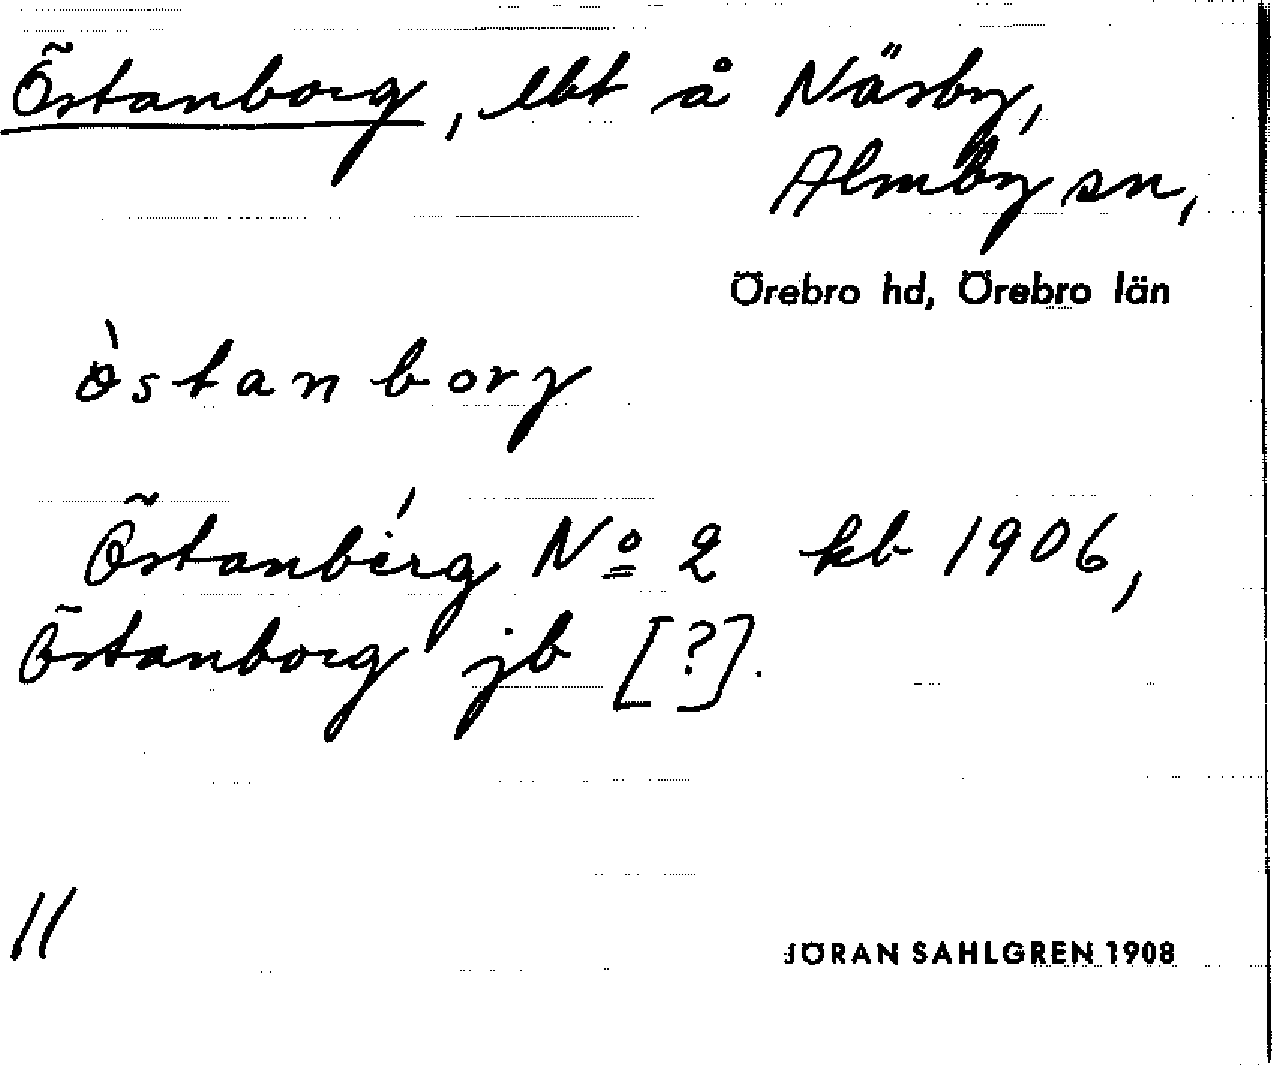 Östanborg, lbt å Näsby,
Almby sn,
Örebro hd, Örebro län
östanborg
Östanberg Nº 2 kb 1906,
Östanborg jb [?].
11
JÖRAN SAHLGREN 1908